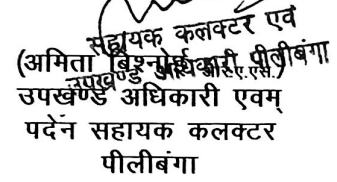 सहायक कलक्टर एवं
उपखण्ड अधिकारी पीलीबंगा
(अमिता बिश्नोई आर.ए.एस.)
उपखण्ड अधिकारी एवम्
पदेन सहायक कलक्टर
पीलीबंगा